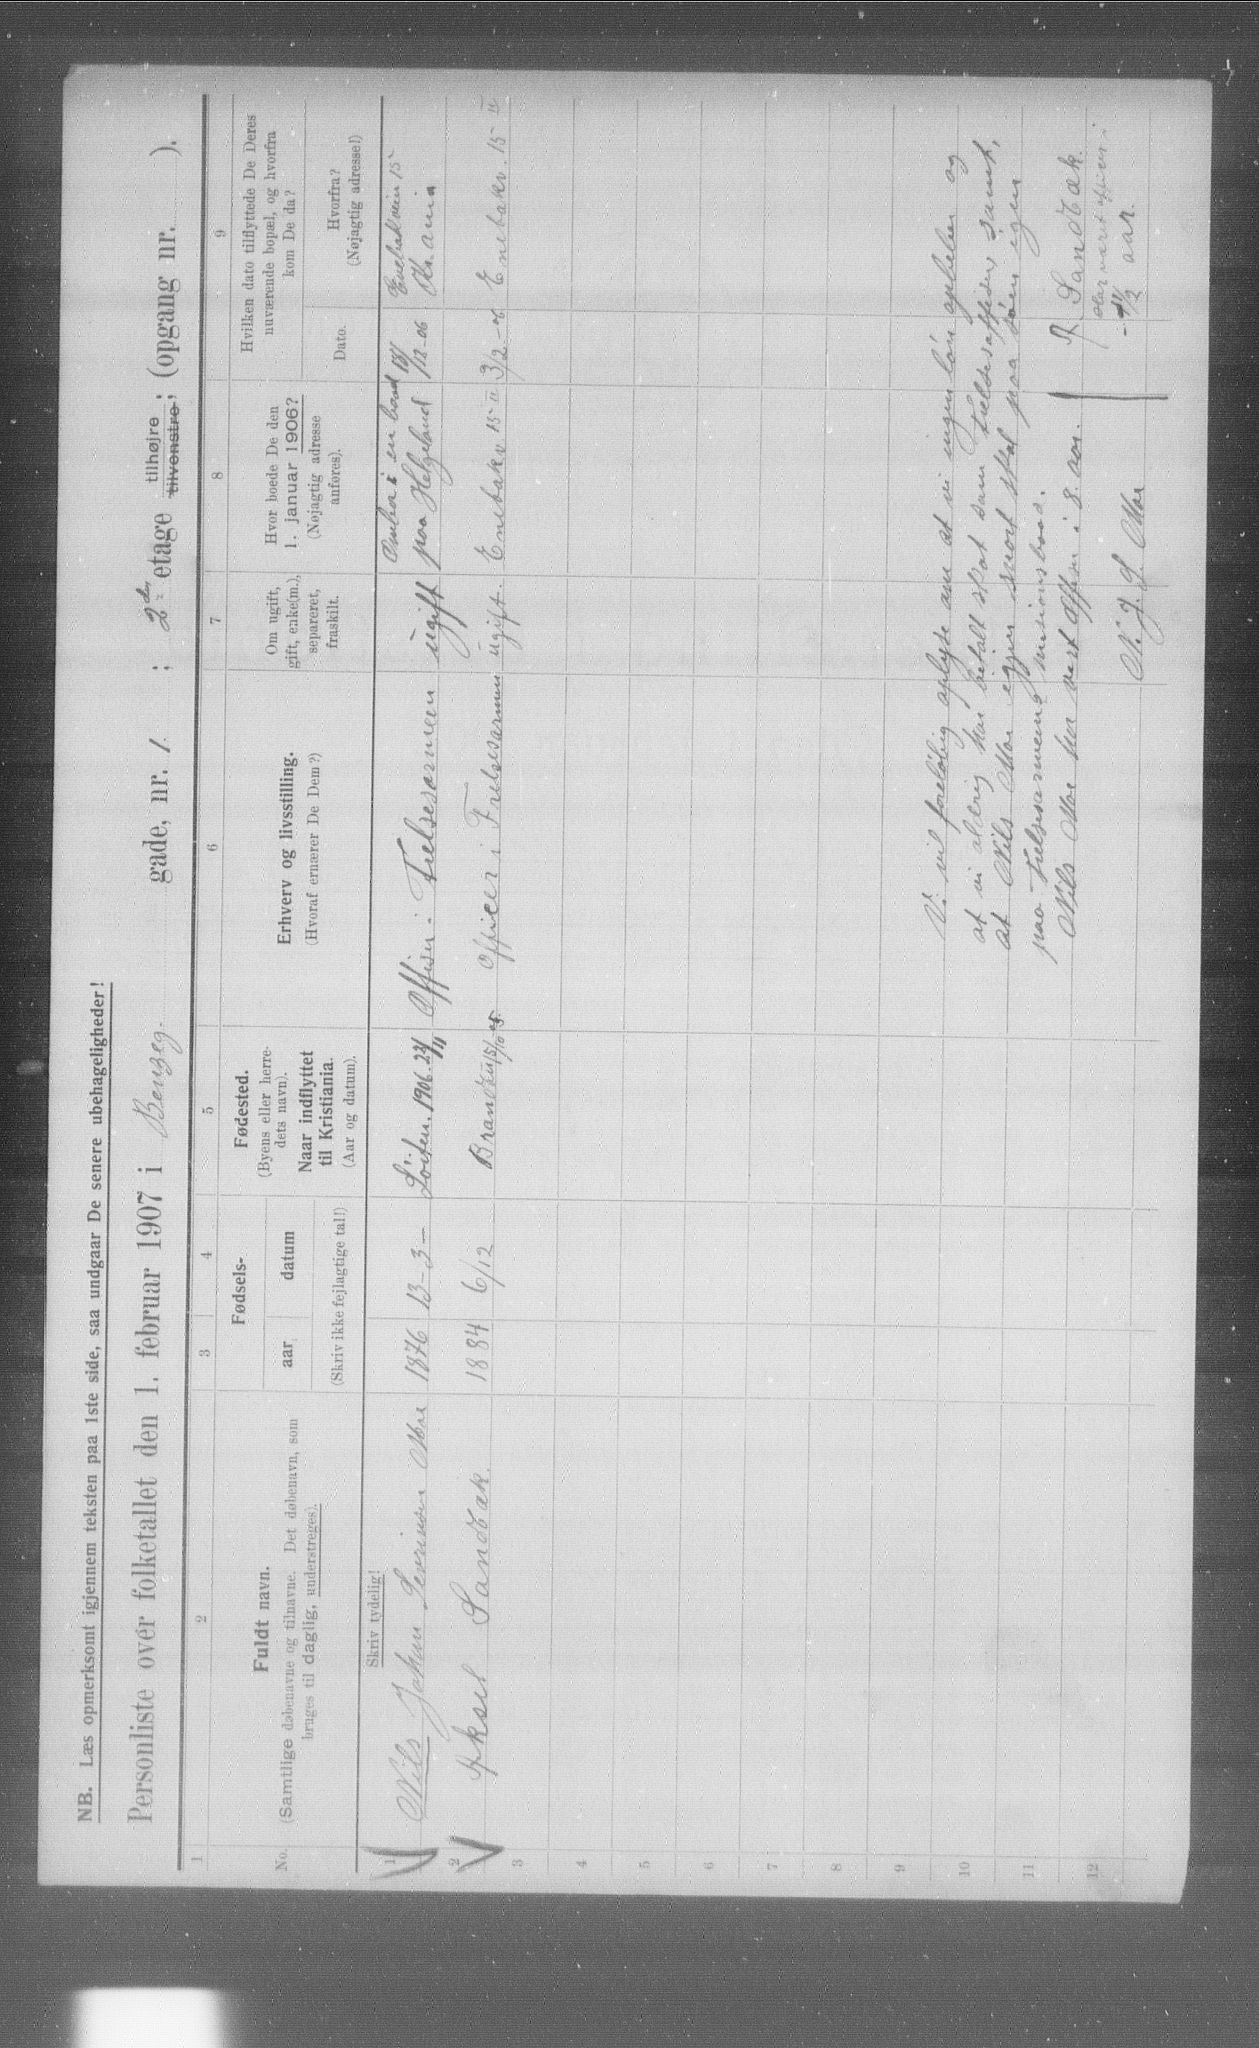 NB. Læs opmerksomt igjennem teksten paa 1ste side, saa undgaar De senere ubehageligheder!
Personliste over folketallet den 1. februar 1907 i Benzeg. gade, nr. 1 ; 2den etage tilhøjre tilvenstre; (opgang nr. ).
1 2 3 4 5 6 7 8 9
No.
Fuldt navn.
(Samtlige døbenavne og tilnavne. Det døbenavn, som
bruges til daglig, understreges).
Fødsels-
aar datum
(Skriv ikke fejlagtige tal!)
Fødested.
(Byens eller herre-
dets navn).
Naar indflyttet
til Kristiania.
(Aar og datum).
Erhverv og livsstilling.
(Hvoraf ernærer De Dem?)
Om ugift,
gift, enke(m.),
separeret,
fraskilt.
Hvor boede De den
1. januar 1906?
(Nøjagtig adresse
anføres).
Hvilken dato tilflyttede De Deres
nuværende bopæl, og hvorfra
kom De da?
Dato.
Hvorfra?
(Nøjagtig adresse!)
Skriv tydelig!
1 Nils Johan Sevrinsen Moe 1876 13-3- Löiten. 1906. Offiser i Frelsesarmeen ugift i en baad paa Helgeland /12-06 Enebakveien 15 Kr.ania
2 Aksel Sandbæk. 1884 6/12 Officer i Frelsesarmeen ugift. Enebakv 15 II 3/2-06 Enebakv. 15 II
3
4
5
6
7
8
9
10
11
12
Vi vil foreløbig oplyse om at vi ingen løn opbeber og
at vi aldrig har betalt skat som frelsesoffiser samt,
at Nils Moe egjen snort skal paa igen
paa Frelsesarmeens misionsbaad.
Nils Moe har vært Offiser i 8 aar.
N. J. S. Moe
A Sandbæk.
har været officer i
- 1/2 aar.